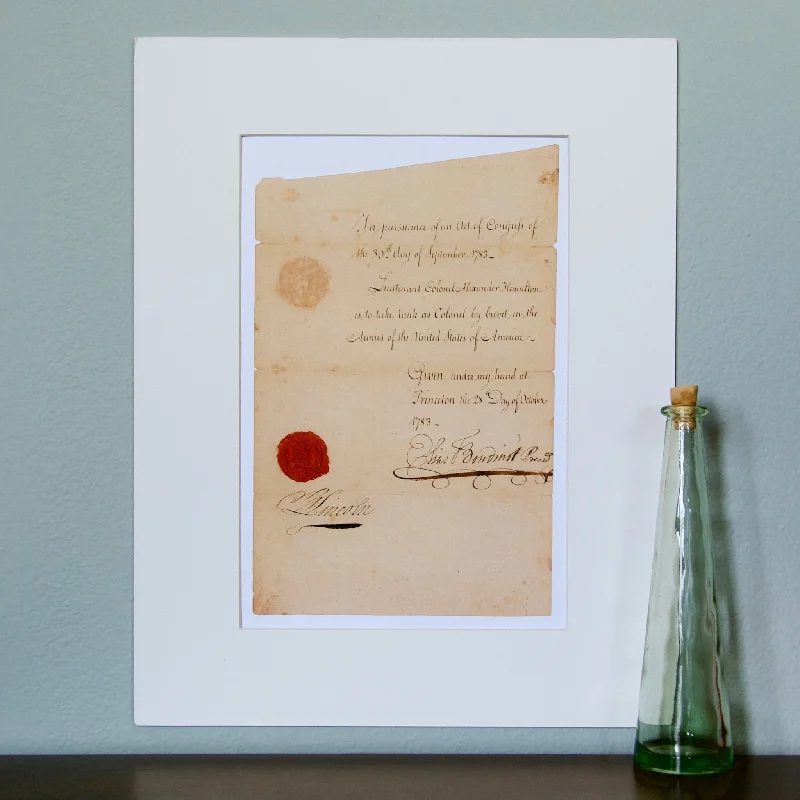 In pursuance of an Act of Congress of
the 30th Day of September 1783_
Lieutenant Colonel Alexander Hamilton
is to take rank as Colonel by brevet, in the
Armies of the United States of America_
Given under my hand at
Princeton the 28th Day of October
1783_
Elias Boudinot Presdt
B Lincoln